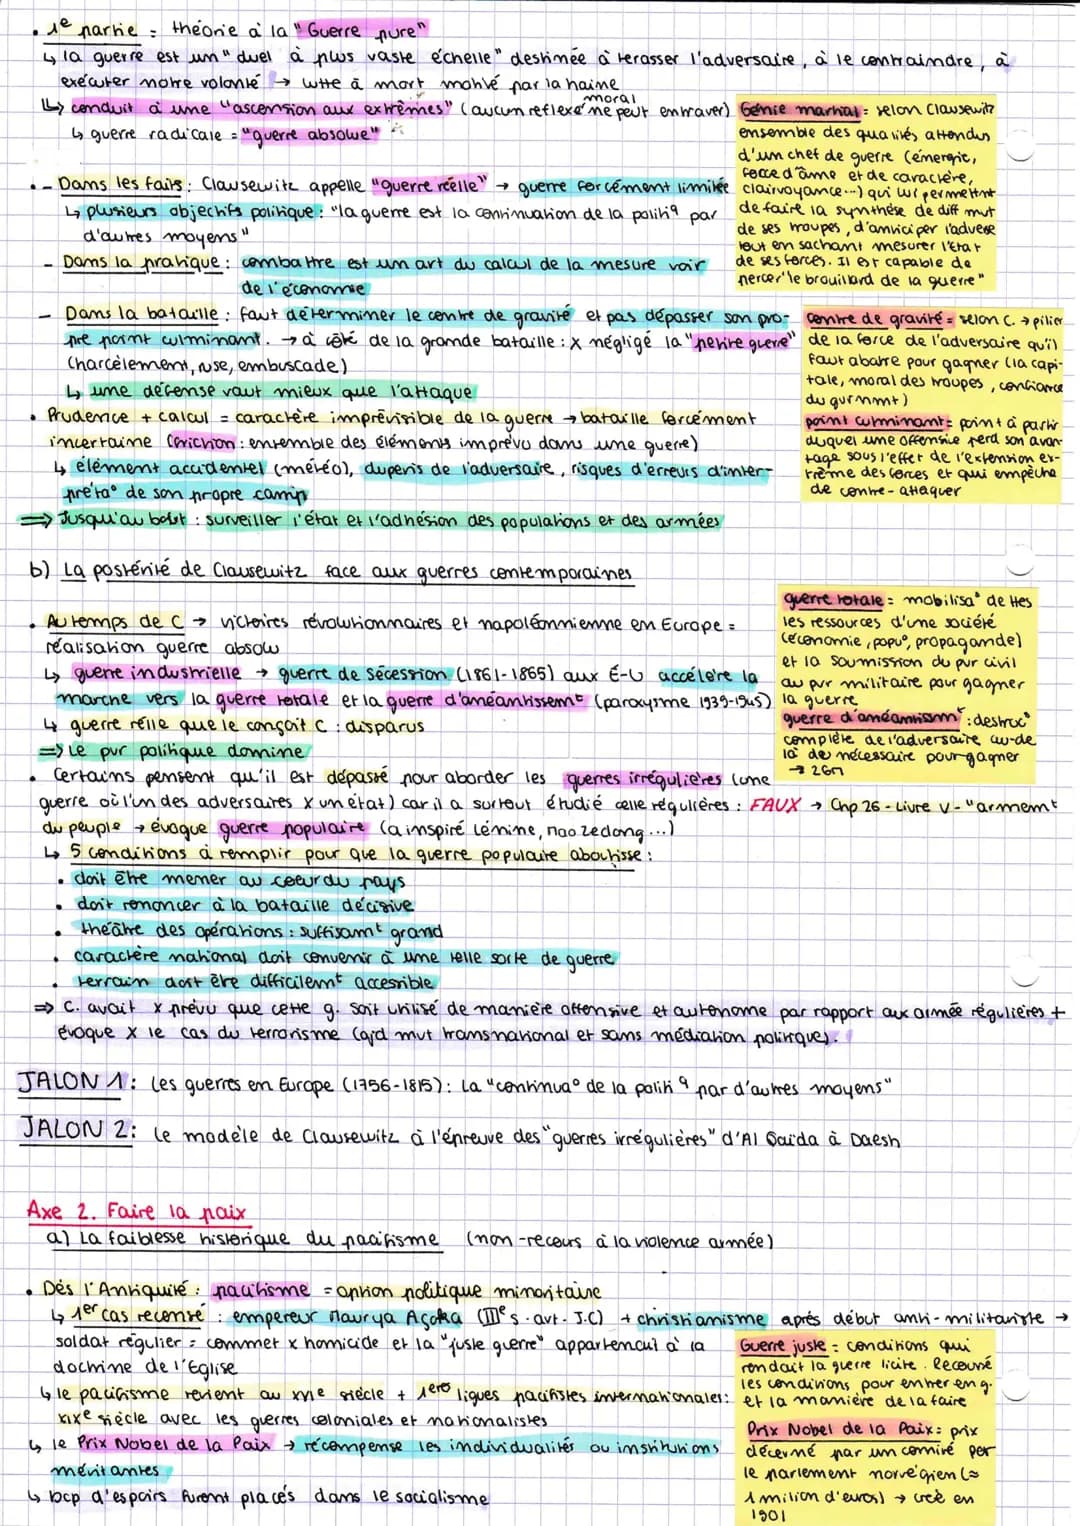 • 1e partie = théorie à la "Guerre pure"
↳ la guerre est un "duel à plus vaste échelle" destinée à terasser l'adversaire, à le contraindre, à
exécuter notre volonté → lutte à mort motivé par la haine
↳ conduit à une "ascension aux extrêmes" (aucun reflexe moral ne peut entraver)
↳ guerre radicale = "guerre absolue"
Génie martial = selon Clausewitz
ensemble des qualités attendus
d'un chef de guerre (émergie,
force d'âme et de caractère,
clairvoyance...) qui lui permettnt
de faire la synthèse de diff mvt
de ses troupes, d'anticiper l'adverse
tout en sachant mesurer l'état
de ses forces. Il est capable de
percer "le brouillard de la guerre"
• - Dans les faits : Clausewitz appelle "guerre réelle" → guerre forcément limitée
↳ plusieurs objectifs politique : "la guerre est la continuation de la politiq par
d'autres moyens"
- Dans la pratique : combattre est un art du calcul de la mesure voir
de l'économie
- Dans la bataille : faut déterminer le centre de gravité et pas dépasser son pro-
pre point culminant. → à côté de la grande bataille : x négligé la "petite guerre"
(harcèlement, ruse, embuscade)
↳ une défense vaut mieux que l'attaque
centre de gravité = selon C. → pilier
de la force de l'adversaire qu'il
faut abattre pour gagner (la capi-
tale, moral des troupes, confiance
du gvrnmt)
point culminant = point à partir
duquel une offensive perd son avan-
tage sous l'effet de l'extension ex-
trême des forces et qui empêche
de contre-attaquer
• Prudence + calcul = caractère imprévisible de la guerre → bataille forcément
incertaine (friction : ensemble des éléments imprévu dans une guerre)
↳ élément accidentel (météo), duperis de l'adversaire, risques d'erreurs d'inter-
préta° de son propre camp
⇒ Jusqu'au bout : surveiller l'état et l'adhésion des populations et des armées
b) La postérité de Clausewitz face aux guerres contemporaines
• Au temps de C → victoires révolutionnaires et napoléonnienne en Europe =
réalisation guerre absolu
↳ guerre industrielle → guerre de Sécession (1861-1865) aux É-U accélère la
marche vers la guerre totale et la guerre d'anéantissemt (paroxysme 1939-1945)
↳ guerre réelle que le conçoit C : disparus
⇒ Le pvr politique domine
guerre totale = mobilisa° de ttes
les ressources d'une société
(économie, popu°, propagande)
et la soumission du pvr civil
au pvr militaire pour gagner
la guerre
guerre d'anéantissmt : destruc°
complète de l'adversaire, au-de
là de nécessaire pour gagner
→ 2GM
• Certains pensent qu'il est dépassé pour aborder les guerres irrégulières (une
guerre où l'un des adversaires x un état) car il a surtout étudié celle régulières : FAUX → Chp 26 - Livre V - "armemt
du peuple → évoque guerre populaire (a inspiré Lénine, Mao Zedong...)
↳ 5 conditions à remplir pour que la guerre populaire aboutisse :
• doit être mener au coeur du pays
• doit renoncer à la bataille décisive
• théâtre des opérations : suffisamt grand
• caractère national doit convenir à une telle sorte de guerre
• terrain doit être difficilemt accesible
⇒ C. avait x prévu que cette g. soit utilisé de manière offensive et autonome par rapport aux armée régulières +
évoque x le cas du terrorisme (ajd mvt transnational et sans médiation politique).
JALON 1 : Les guerres en Europe (1756-1815) : La "continua° de la politiq par d'autres moyens"
JALON 2 : Le modèle de Clausewitz à l'épreuve des "guerres irrégulières" d'Al Qaïda à Daesh
Axe 2. Faire la paix
a) La faiblesse historique du pacifisme (non-recours à la violence armée)
• Dès l'Antiquité : pacifisme = option politique minoritaire
↳ 1er cas recensé : empereur Maurya Açoka (IIIe s. avt. J.C) + christianisme après début anti-militariste →
soldat régulier = commet x homicide et la "juste guerre" appartenait à la
doctrine de l'Eglise
↳ le pacifisme revient au XIXe siècle + 1ères ligues pacifistes internationales :
XIXe siècle avec les guerres coloniales et nationalistes
↳ le Prix Nobel de la Paix → récompense les individualités ou institutions
méritantes
↳ bcp d'espoirs furent placés dans le socialisme
Guerre juste = conditions qui
rendait la guerre licite. Recouvré
les conditions pour entrer en g.
et la manière de la faire
Prix Nobel de la Paix : prix
décerné par un comité par
le parlement norvégien (≈
1 milion d'euros) → créé en
1901